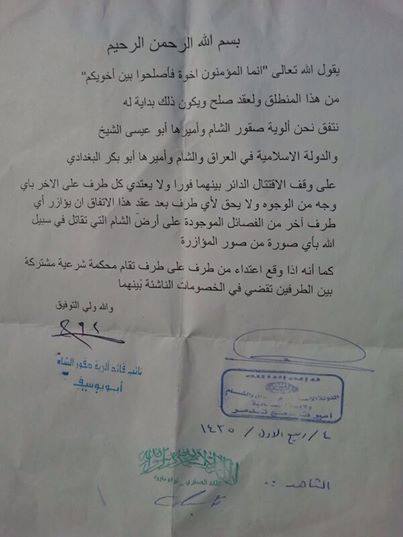 بسم الله الرحمن الرحيم
يقول الله تعالى "انما المؤمنون اخوة فأصلحوا بين أخويكم"
من هذا المنطلق ولعقد صلح ويكون ذلك بداية له
نتفق نحن ألوية صقور الشام وأميرها أبو عيسى الشيخ
والدولة الاسلامية في العراق والشام وأميرها أبو بكر البغدادي
على وقف الاقتتال الدائر بينهما فورا ولا يعتدي كل طرف على الاخر باي
وجه من الوجوه ولا يحق لأي طرف بعد عقد هذا الاتفاق ان يؤازر أي
طرف أخر من الفصائل الموجودة على أرض الشام التي تقاتل في سبيل
الله بأي صورة من صور المؤازرة
كما أنه اذا وقع اعتداء من طرف على طرف تقام محكمة شرعية مشتركة
بين الطرفين تقضي في الخصومات الناشئة بينهما
والله ولي التوفيق
نائب قائد ألوية صقور الشام
أبو يوسف
٤ / ربيع الاول / ١٤٣٥
الشاهد :